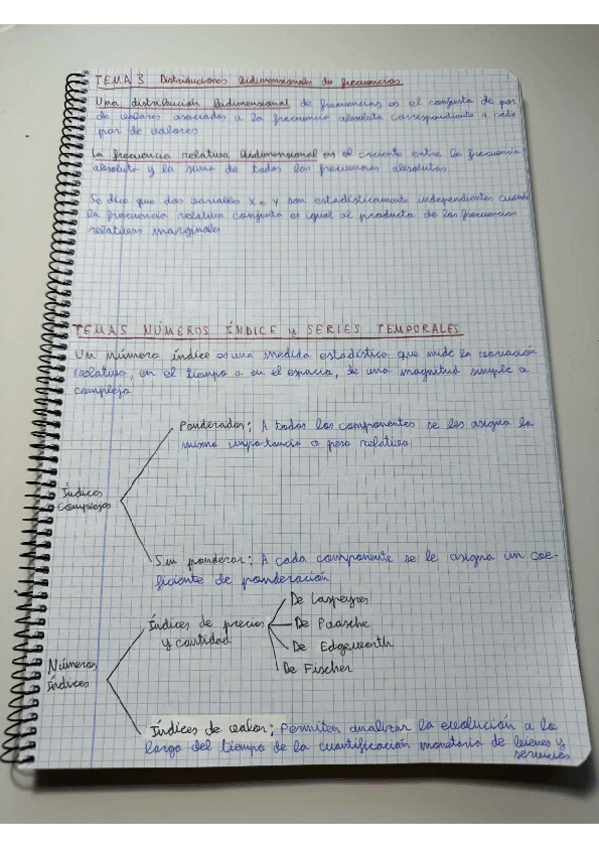 TEMA 3 Distribuciones Bidimensionales de frecuencias
Una distribución Bidimensional de frecuencias es el conjunto de par
de valores asociados a la frecuencia absoluta correspondiente a cada
par de valores
La frecuencia relativa Bidimensional es el cociente entre la frecuencia
absoluta y la suma de todas las frecuencias absolutas
Se dice que dos variables X e Y son estadísticamente independientes cuando
la frecuencia relativa conjunta es igual al producto de las frecuencias
relativas marginales
TEMA5 NÚMEROS ÍNDICE y SERIES TEMPORALES
Un número índice es una medida estadística que mide la variación
relativa, en el tiempo o en el espacio, de una magnitud simple o
compleja
Ponderados; A todos los componentes se les asigna la
misma importancia o peso relativo
Índices
complejos
Sin ponderar; A cada componente se le asigna un coe-
ficiente de ponderación
De Laspeyres
Índices de precios
De Paasche
y cantidad
De Edgeworth
Números
De Fischer
índices
Índices de valor; Permiten analizar la evolución a lo
largo del tiempo de la cuantificación monetaria de bienes y
servicios